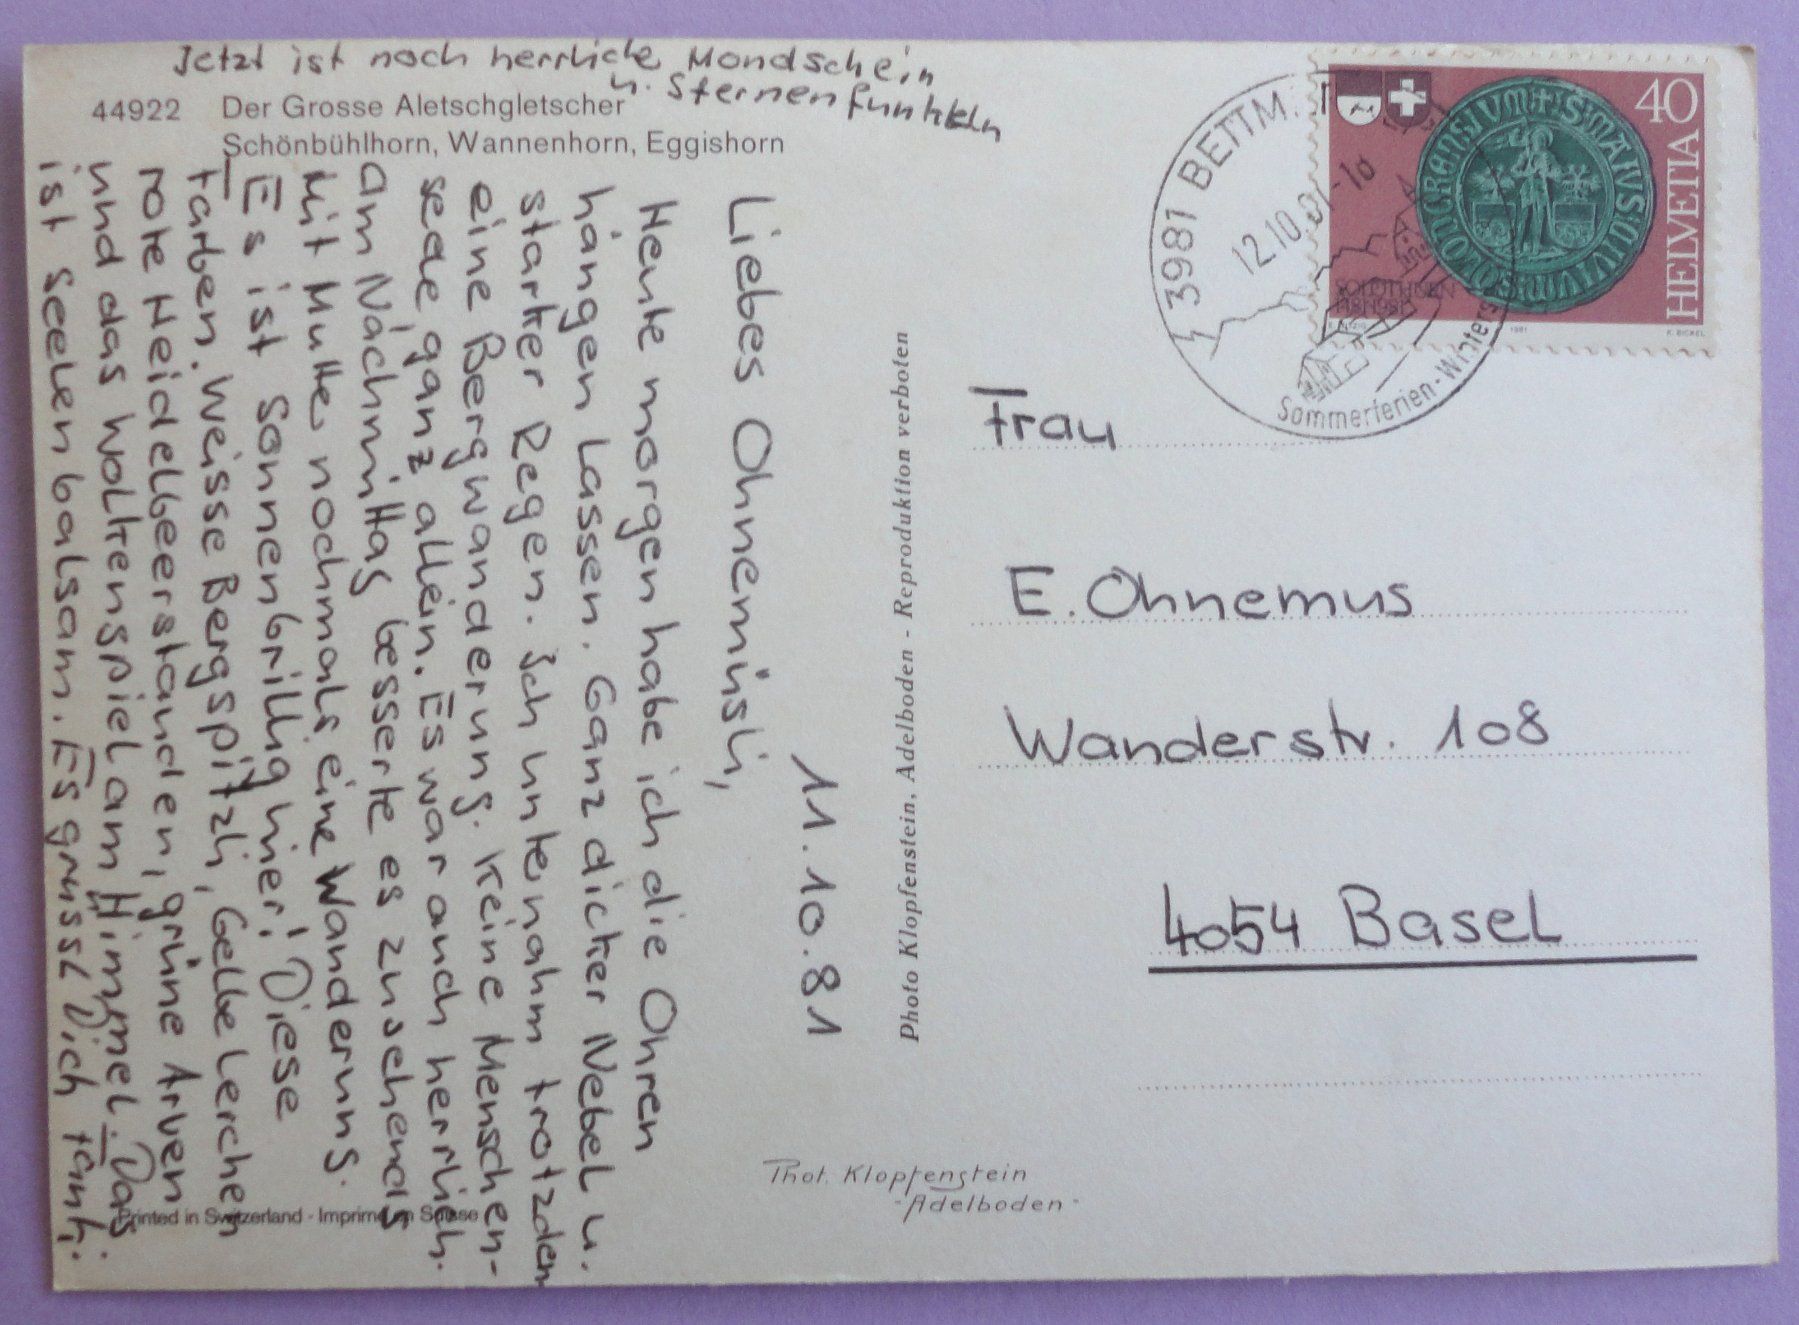 Jetzt ist noch herrliche Mondschein
u. Sternenfunkeln
44922 Der Grosse Aletschgletscher
Schönbühlhorn, Wannenhorn, Eggishorn
11.10.81
Liebes Ohnemüsli,
Heute morgen habe ich die Ohren
hängen lassen. Ganz dicker Nebel u.
starker Regen. Ich unternahm trotzdem
eine Bergwanderung. Keine Menschen-
seele, ganz allein. Es war auch herrlich.
Am Nachmittag besserte es zusehends
Mit Mutte nochmals eine Wanderung.
Es ist Sonnenbrillig hier! Diese
Farben. Weisse Bergspitzli, Gelbe Lerchen
rote Heidelbeerstauden, grüne Arven
und das Wolkenspiel am Himmel. Das
ist Seelenbalsam. Es grüsst Dich
Photo Klopfenstein, Adelboden - Reproduktion verboten
Phot. Klopfenstein
-Adelboden-
Printed in Switzerland - Imprimé en Suisse
3981 BETTM
12.10.81-18
Sommerferien-Winters
40
HELVETIA
SOLOTHURN
1481-1981
1981
K. BICKEL
Frau
E. Ohnemus
Wanderstr. 108
4054 Basel